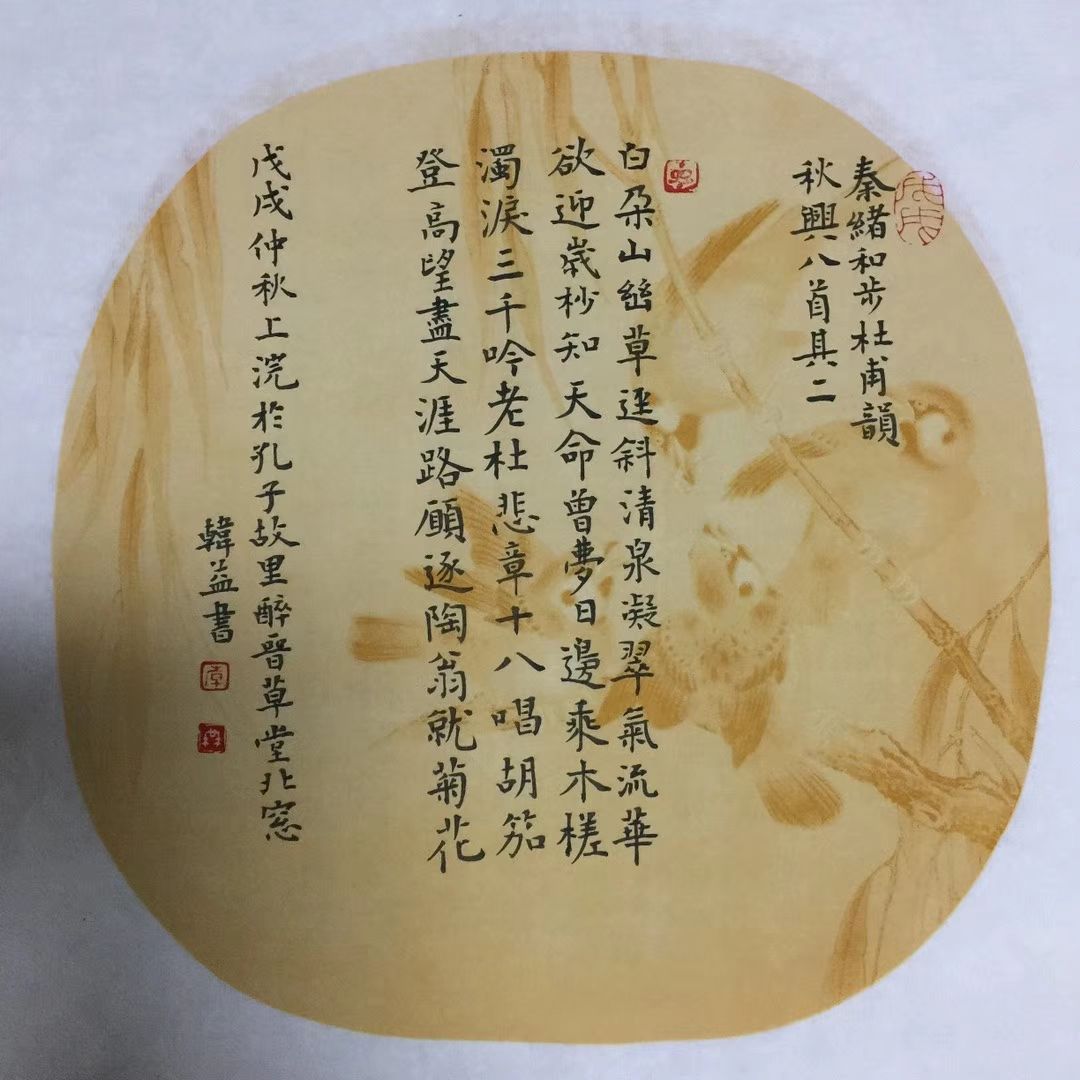 秦緒和步杜甫韻
秋興八首其二
白朵山幽草逕斜清泉凝翠氣流華
欲迎歲杪知天命曾夢日邊乘木槎
濁淚三千吟老杜悲章十八唱胡笳
登高望盡天涯路願逐陶翁就菊花
戊戌仲秋上浣於孔子故里醉晉草堂北窓
韓益書
戊戌